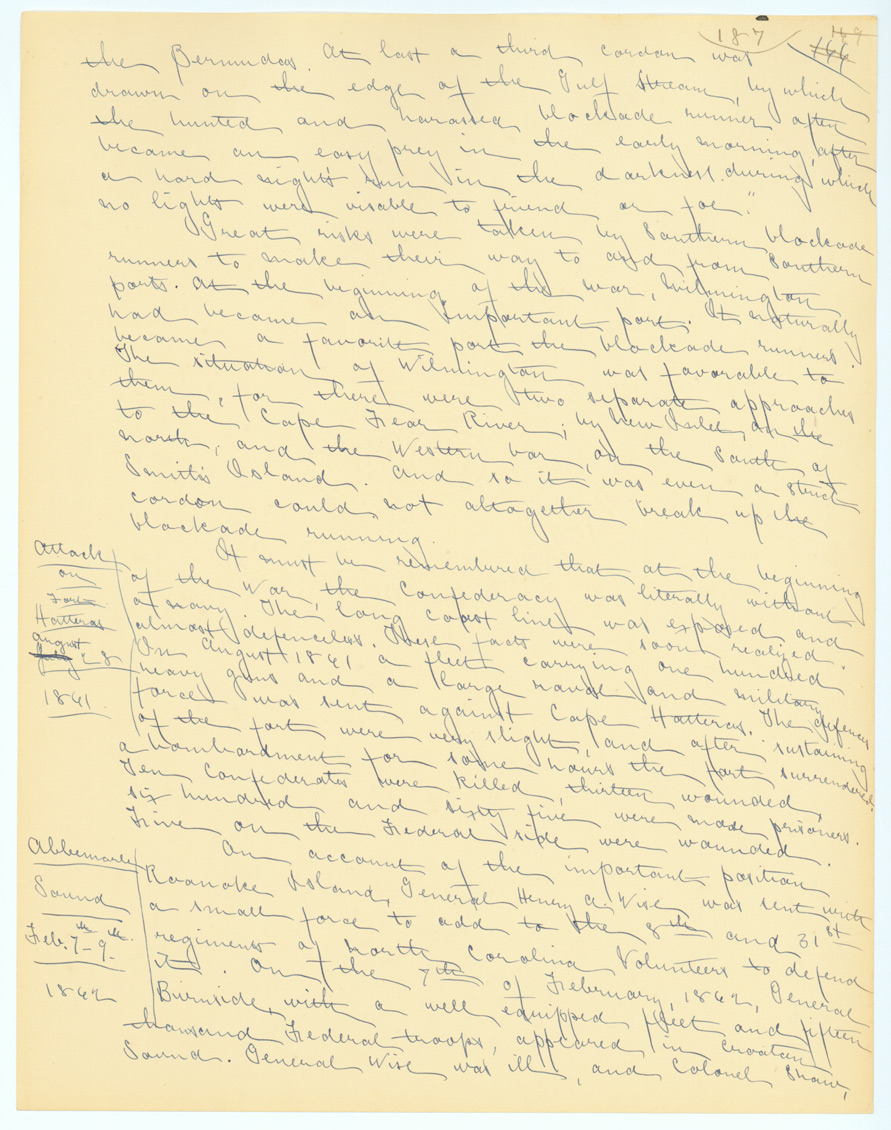 187
49
146
the Bermudas. At last a third cordon was
drawn on the edge of the Gulf Stream, by which
the hunted and harassed blockade runner often
became an easy prey in the early morning, after
a hard night's run in the darkness during which
no lights were visable to friend or foe."
Great risks were taken by Southern blockade
runners to make their way to and from Southern
ports. At the beginning of the war, Wilmington
had became an important port. It naturally
became a favorite port the blockade runners.
The situation of Wilmington was favorable to
them, for there were two separate approaches
to the Cape Fear River; by New Inlet, on the
north, and the Western bar, on the South of
Smith's Island. And so it was even a strict
cordon could not altogether break up the
blockade running.
Attack
on
Fort
Hatteras
August
28
1861
It must be remembered that at the beginning
of the War, the Confederacy was literally without
a navy. The long coast line was exposed and
almost defenceless. These facts were soon realized.
In August 1861 a fleet carrying one hundred
heavy guns and a large naval and military
force was sent against Cape Hatteras. The defences
of the fort were very slight, and after sustaining
a bombardment for some hours the fort surrendered.
Ten Confederates were killed, thirteen wounded,
six hundred and sixty five were made prisoners.
Five on the Federal side were wounded.
Abbemarle
Sound
Feb. 7th-9th.
1862
On account of the important position
Roanoke Island, General Henry A. Wise was sent with
a small force to add to the 8th and 31st
regiments of North Carolina Volunteers to defend
it. On the 7th of February, 1862, General
Burnside, with a well equipped fleet and fifteen
thousand Federal troops, appeared in Croatan
Sound. General Wise was ill, and Colonel Shaw,